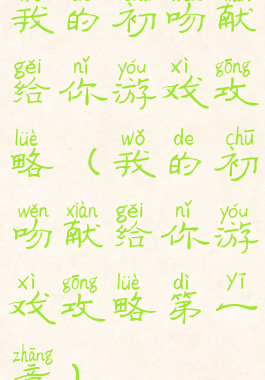 我的初吻献
gěi nǐ yóu xì gōng
给你游戏攻
lüè wǒ de chū
略（我的初
wěn xiàn gěi nǐ yóu
吻献给你游
xì gōng lüè dì yī
戏攻略第一
zhāng